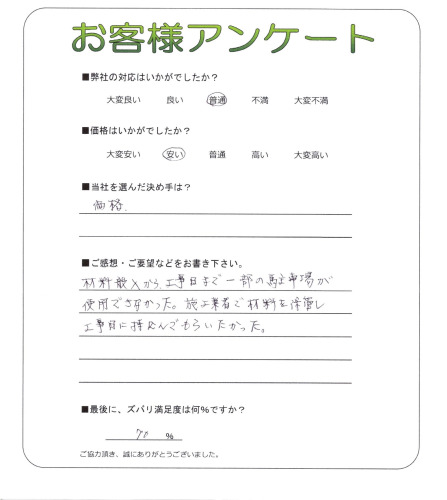 お客様アンケート
■弊社の対応はいかがでしたか？
大変良い 良い 普通 不満 大変不満
■価格はいかがでしたか？
大変安い 安い 普通 高い 大変高い
■当社を選んだ決め手は？
価格.
■ご感想・ご要望などをお書き下さい。
材料搬入から、工事日まで一部の駐車場が
使用できなかった。施工業者で材料を保管し
工事日に持込んでもらいたかった。
■最後に、ズバリ満足度は何％ですか？
％
ご協力頂き、誠にありがとうございました。